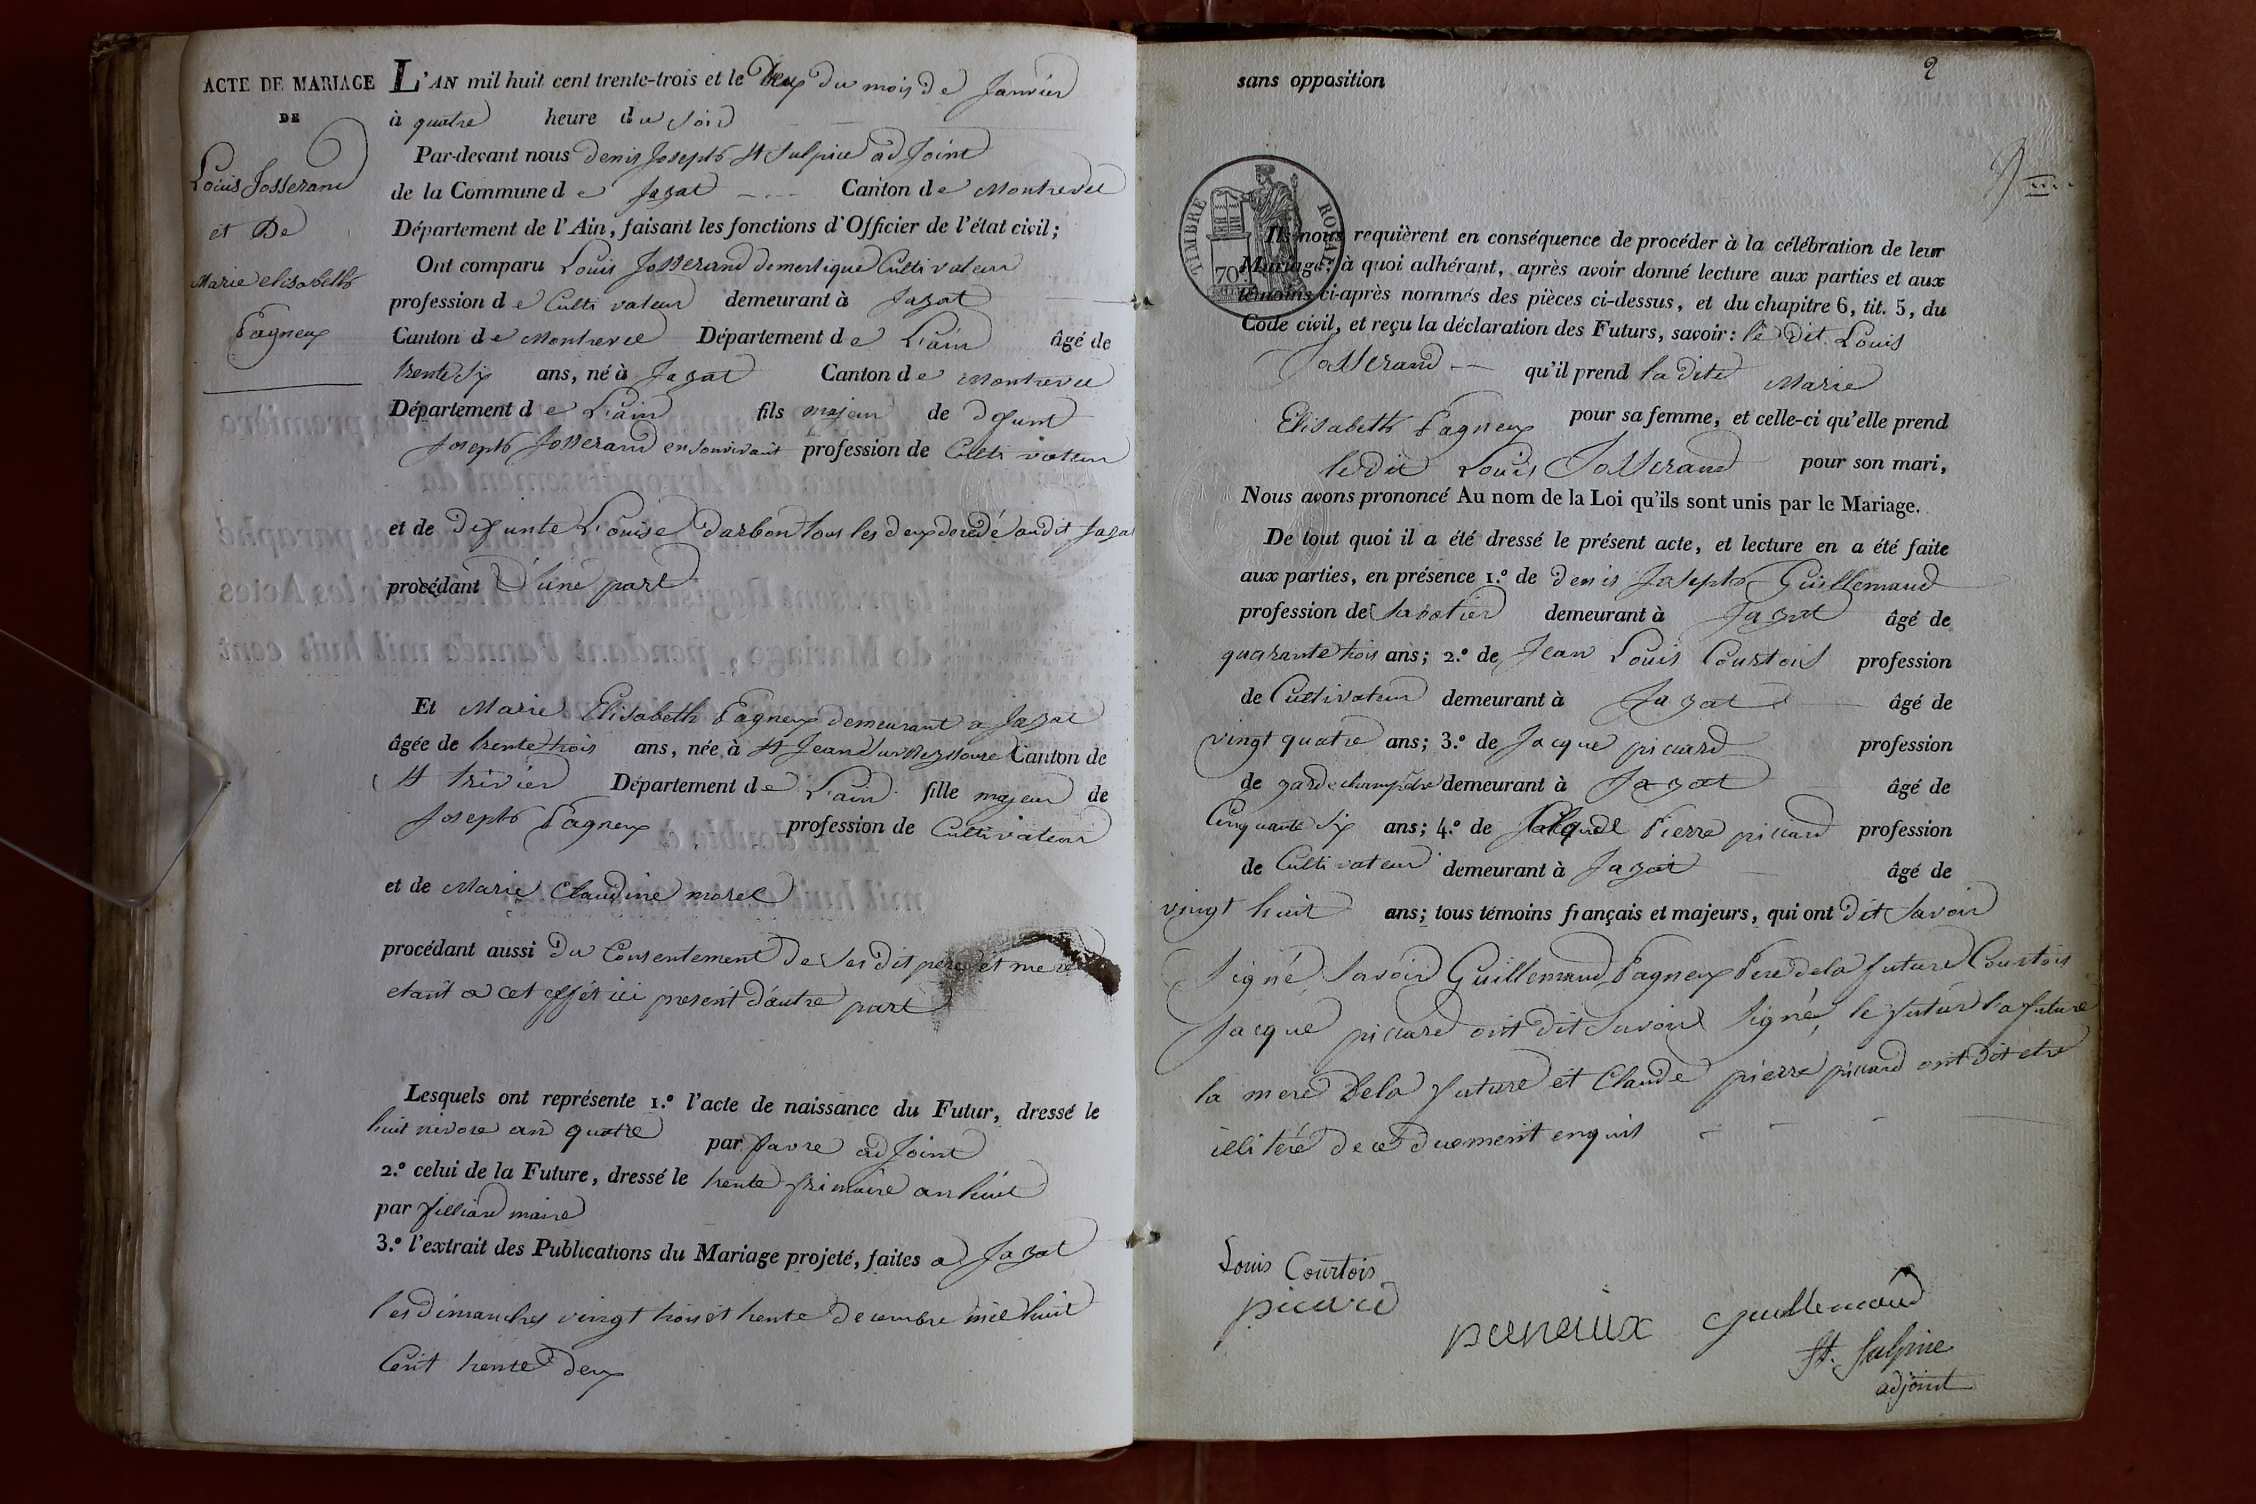 ACTE DE MARIAGE
DE
Louis Josserand
et De
Marie elisabeth
Pagneux
L'AN mil huit cent trente-trois et le Deux du mois de Janvier
à quatre heure du Soir
Par-devant nous denis Joseph St Sulpice adjoint
de la Commune de Jayat Canton de Montrevel
Département de l'Ain, faisant les fonctions d'Officier de l'état civil;
Ont comparu Louis Josserand domestique Cultivateur
profession de Cultivateur demeurant à Jayat
Canton de Montrevel Département de L'ain âgé de
trente six ans, né à Jayat Canton de Montrevel
Département de L'ain fils majeur de defunt
Joseph Josserand en son vivant profession de Cultivateur
et de defunte Louise Darbon tous les deux décédé audit Jayat
procédant D'une part
Et Marie Elisabeth Pagneux demeurant a Jayat
âgée de trente trois ans, née à St Jean sur Reyssouze Canton de
St trivier Département de L'ain fille majeur de
Joseph Pagneux profession de Cultivateur
et de Marie Claudine morel
procédant aussi du Consentement de ses dit pere et mere
etant a cet effét ici present d'autre part
Lesquels ont représente 1.º l'acte de naissance du Futur, dressé le
huit nivose an quatre par favre adjoint
2.º celui de la Future, dressé le trente frimaire an huit
par filliard maire
3.º l'extrait des Publications du Mariage projeté, faites a Jayat
les dimanches vingt trois et trente decembre mil huit
Cent trente deux
2
sans opposition
TIMBRE ROYAL
70
Ils nous requièrent en conséquence de procéder à la célébration de leur
Mariage; à quoi adhérant, après avoir donné lecture aux parties et aux
témoins ci-après nommés des pièces ci-dessus, et du chapitre 6, tit. 5, du
Code civil, et reçu la déclaration des Futurs, savoir: le dit Louis
Josserand qu'il prend la dite Marie
Elisabeth Pagneux pour sa femme, et celle-ci qu'elle prend
ledit Louis Josserand pour son mari,
Nous avons prononcé Au nom de la Loi qu'ils sont unis par le Mariage.
De tout quoi il a été dressé le présent acte, et lecture en a été faite
aux parties, en présence 1.º de denis Joseph Guillemaud
profession de sabotier demeurant à Jayat âgé de
quarante trois ans; 2.º de Jean Louis Courtois profession
de Cultivateur demeurant à Jayat âgé de
vingt quatre ans; 3.º de Jacque piccard profession
de garde champêtre demeurant à Jayat âgé de
Cinquante six ans; 4.º de Claude Pierre piccard profession
de Cultivateur demeurant à Jayat âgé de
vingt huit ans; tous témoins français et majeurs, qui ont dit savoir
signé, savoir Guillemaud Pagneux Pere dela future Courtois
Jacque piccard ont dit savoir signé, le futur la future
la mere dela future et Claude pierre piccard ont dit etre
illitéré de ce duement enquis
Louis Courtois
picard
guillemaud
St. Sulpice
adjoint